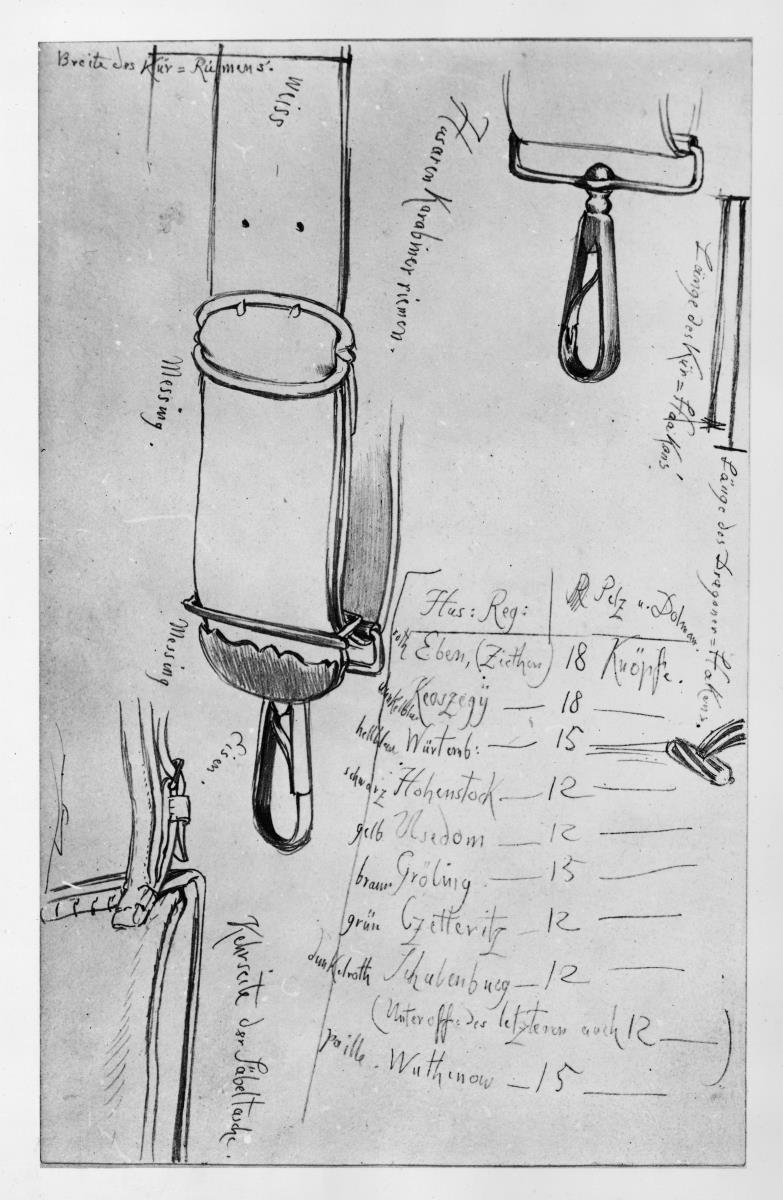 Breite des Kür = Riemens.
Weiss
Husaren Karabiner riemen.
Messing.
Messing
Eisen.
Länge des Kür = Haakens!
Länge des Dragoner = Hakens.
Hus: Reg: Pelz u. Dolman.
roth Eben, (Ziethen) 18 Knöpfe.
dunkelblau Keoszegÿ — 18 —
hellblau Würtemb: — 15
schwarz Hohenstock — 12 —
gelb Usedom — 12 —
braun Gröling — 15 —
grün Czetteritz — 12 —
dunkelroth Schulenburg — 12 —
(Unteroff: des letzteren auch 12 — )
paille. Wuthenow — 15 —
Kehrseite der Säbeltasche.